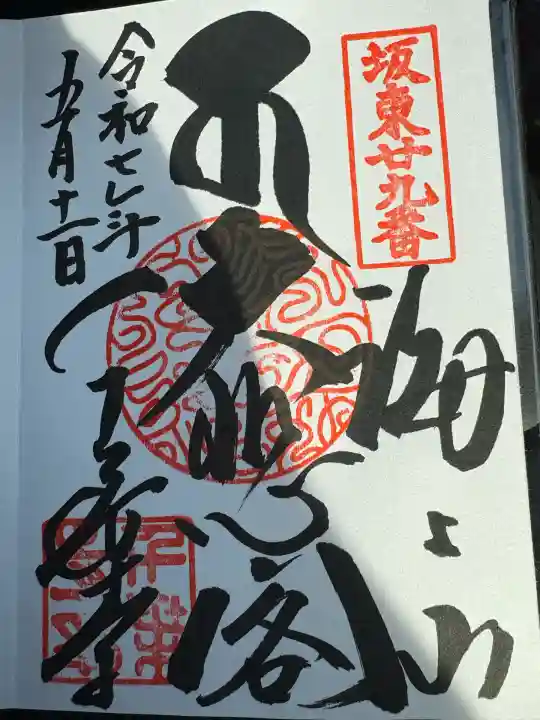 坂東廿九番
海上山
大悲閣
千葉寺
令和七年
五月十一日